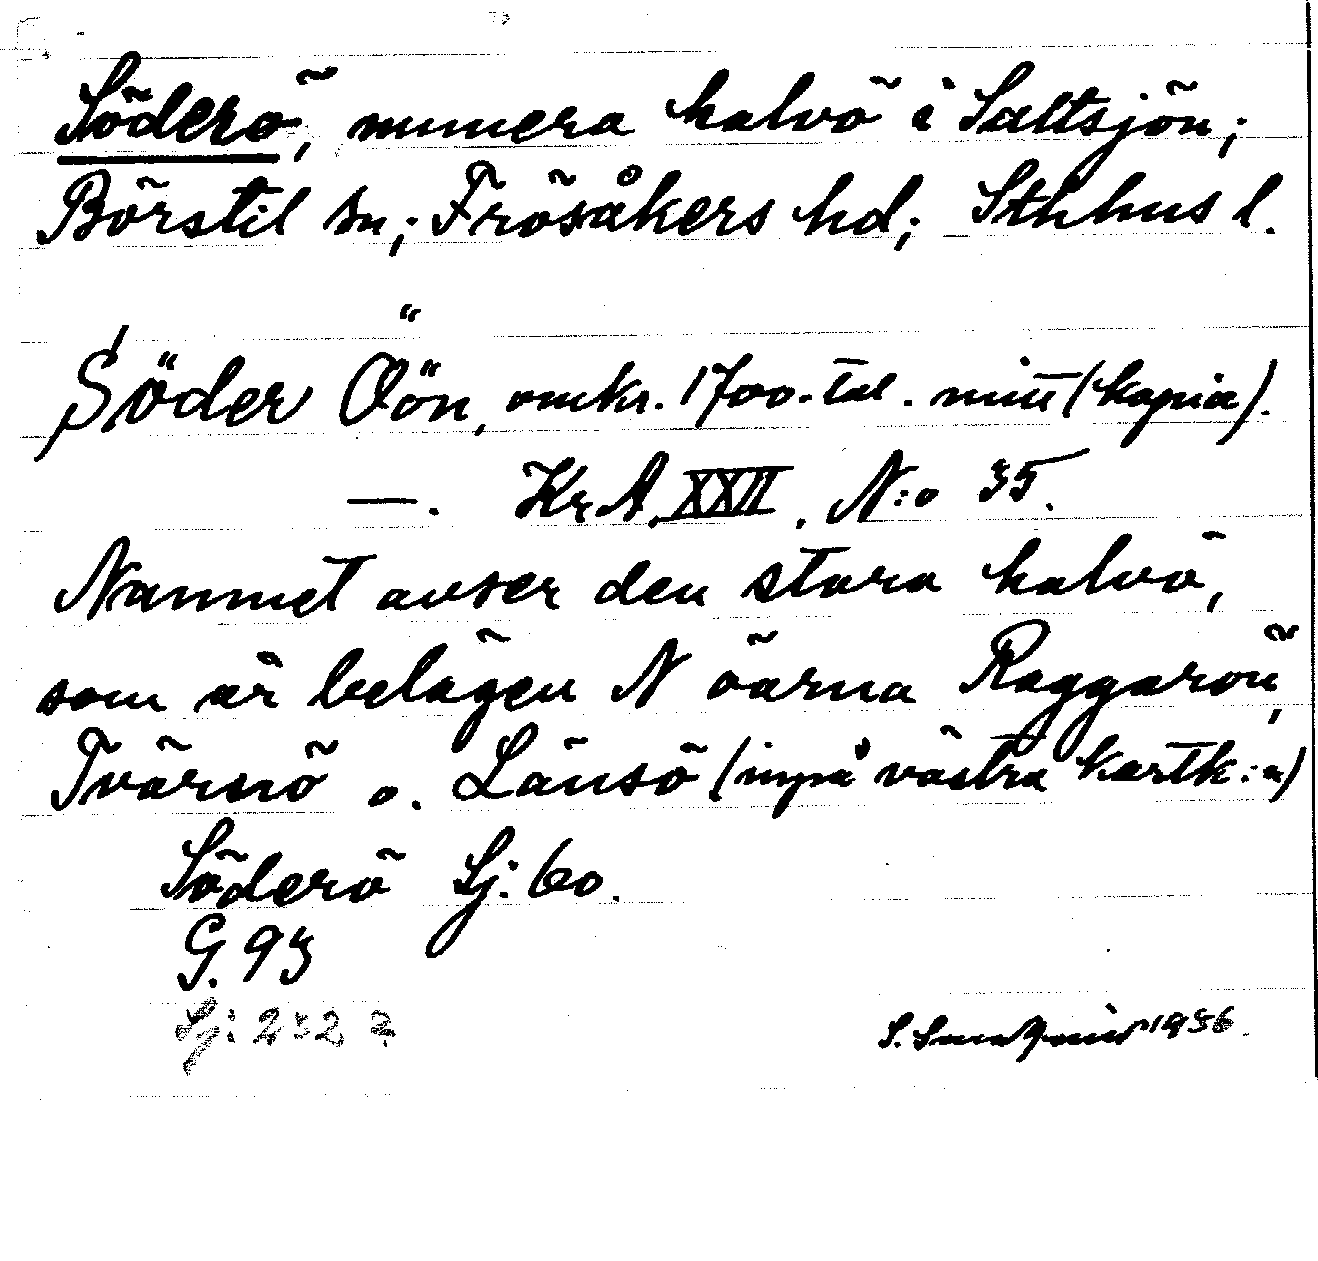 Söderö, numera halvö i Saltsjön;
Börstil sn; Frösåkers hd; Sthhus l.
Söder Öön, omkr. 1700-tal. mitt (kopia).
—. Kr A, XXII, N:o 35.
Namnet avser den stora halvö,
som är belägen N öarna Raggarön,
Tvärnö o. Länsö (inpå västra kartk:n)
Söderö Sj: 60.
G. 93
Sj: 232 2
S. 1936.